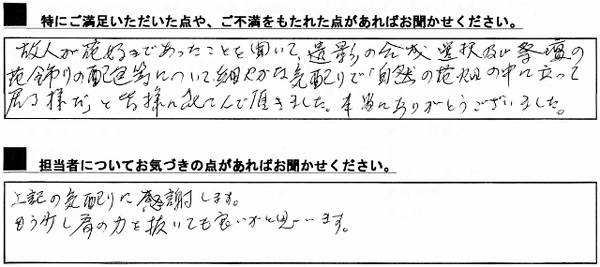 特にご満足いただいた点や、ご不満をもたれた点があればお聞かせください。
故人が花好きであったことを聞いて、遺影の合成、選択及び祭壇の
花飾りの配色等について、細やかな気配りで「自然の花畑の中に立って
居る様だ」と皆様に喜んで頂きました。本当にありがとうございました。
担当者についてお気づきの点があればお聞かせください。
上記の気配りに感謝します。
もう少し肩の力を抜いても良いかと思います。